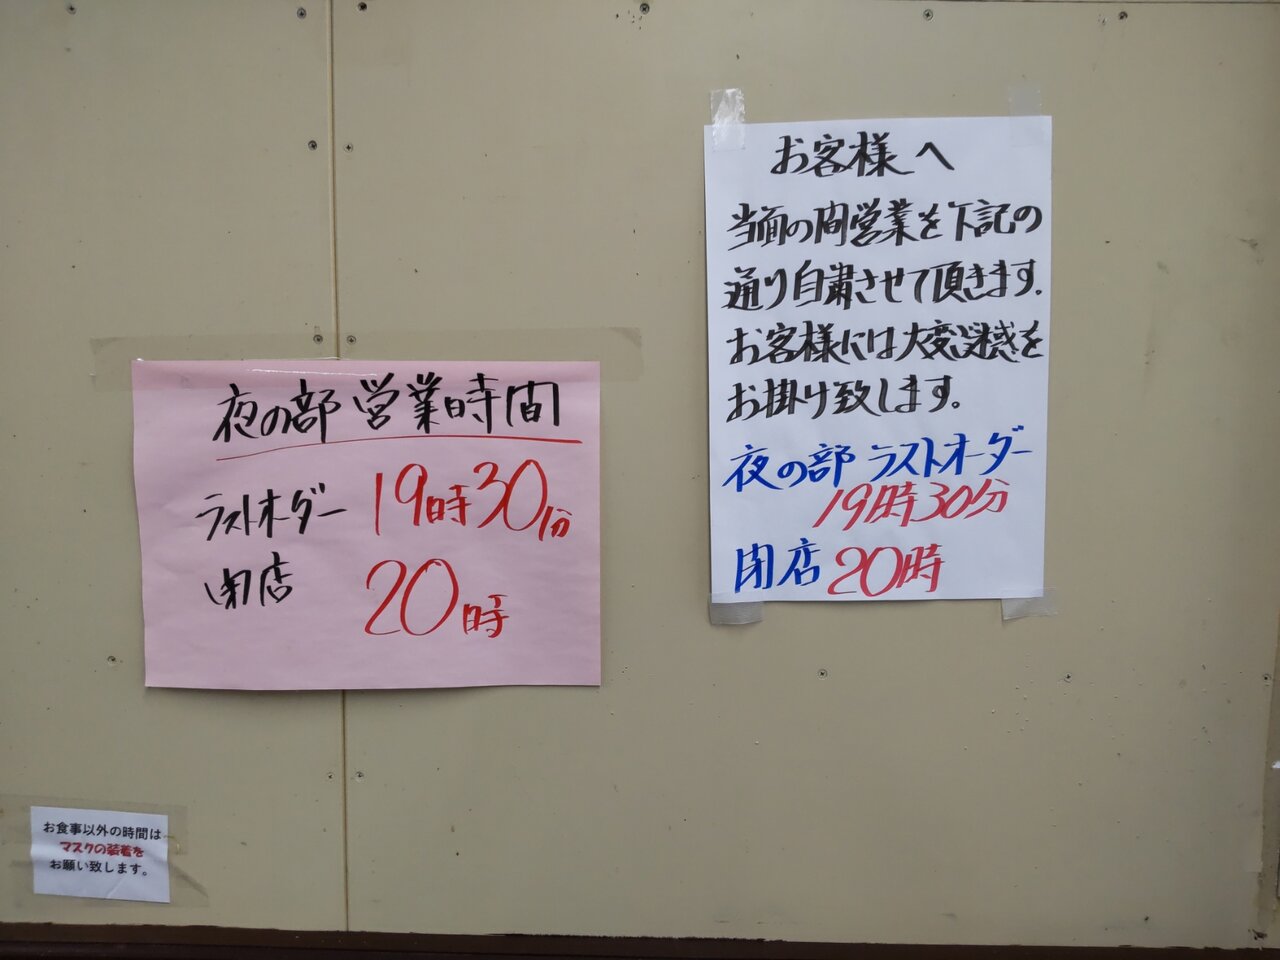 夜の部 営業時間
ラストオーダー 19時30分
閉店 20時
お客様へ
当面の間営業を下記の
通り自粛させて頂きます。
お客様には大変迷惑を
お掛け致します。
夜の部 ラストオーダー
19時30分
閉店 20時
お食事以外の時間は
マスクの装着を
お願い致します。